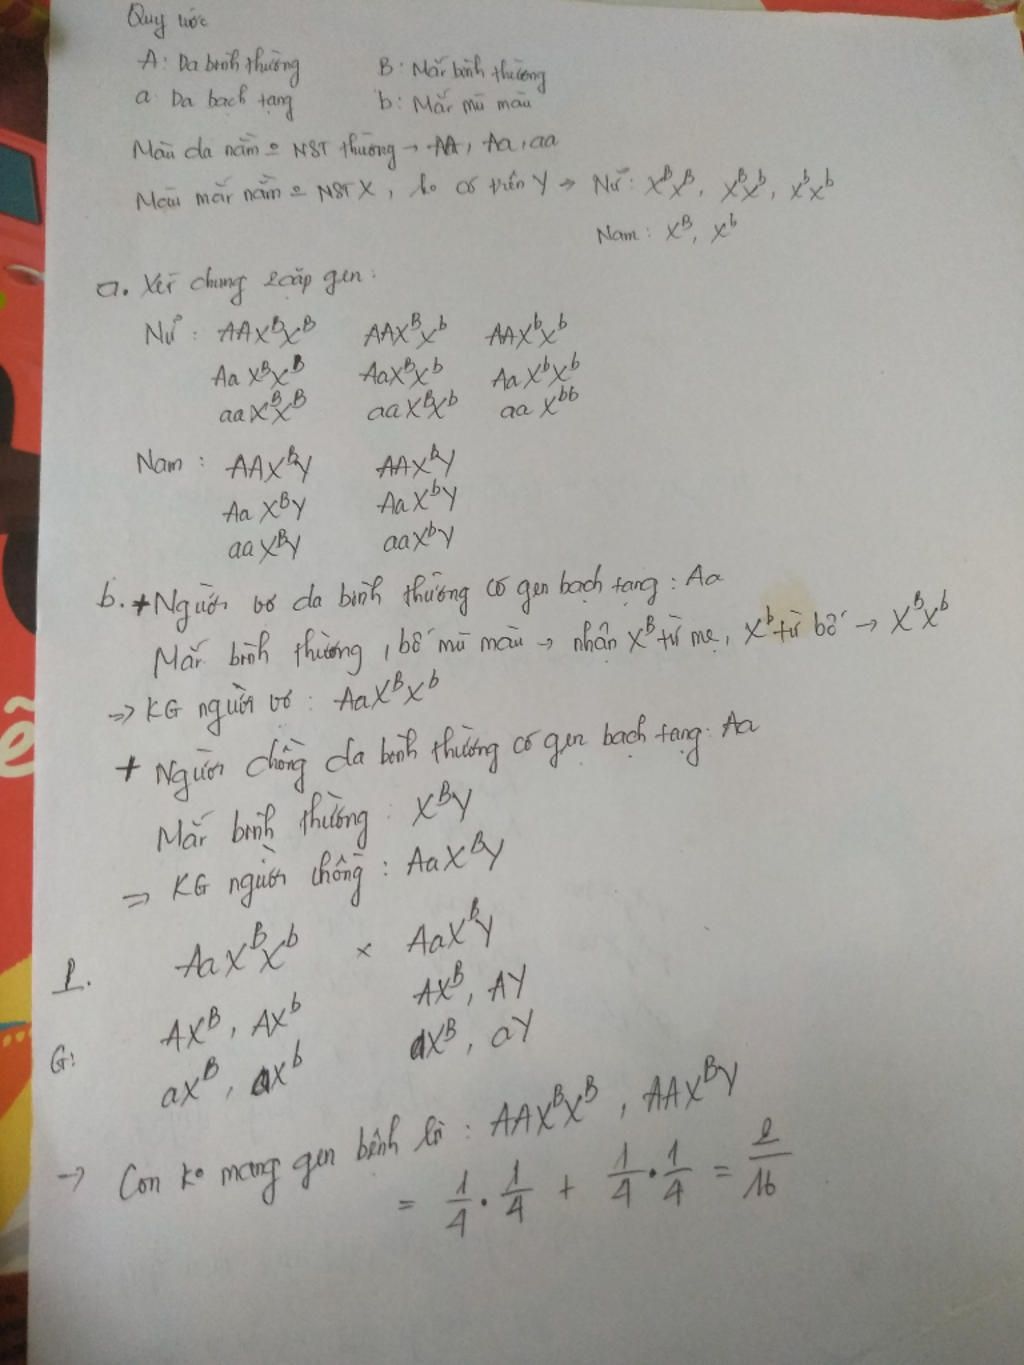 Quy ước
A: Da bình thường B: Mắt bình thường
a: Da bạch tạng b: Mắt mù màu
Màu da nằm ở NST thường → AA, Aa, aa
Màu mắt nằm ở NST X, ko có trên Y → Nữ: XᴮXᴮ, XᴮXᵇ, XᵇXᵇ
Nam: Xᴮ, Xᵇ
a. Xét chung 2 cặp gen:
Nữ: AAXᴮXᴮ AAXᴮXᵇ AAXᵇXᵇ
AaXᴮXᴮ AaXᴮXᵇ AaXᵇXᵇ
aaXᴮXᴮ aaXᴮXᵇ aaXᵇᵇ
Nam: AAXᴮY AAXᵇY
AaXᴮY AaXᵇY
aaXᴮY aaXᵇY
b. + Người vợ da bình thường có gen bạch tạng: Aa
Mắt bình thường, bố mù màu → nhận Xᴮ từ mẹ, Xᵇ từ bố → XᴮXᵇ
=> KG người vợ: AaXᴮXᵇ
+ Người chồng da bình thường có gen bạch tạng: Aa
Mắt bình thường: XᴮY
=> KG người chồng: AaXᴮY
P. AaXᴮXᵇ × AaXᴮY
G: AXᴮ, AXᵇ AXᴮ, AY
aXᴮ, aXᵇ aXᴮ, aY
→ Con ko mang gen bệnh là: AAXᴮXᴮ, AAXᴮY
= 1/4 . 1/4 + 1/4 . 1/4 = 2/16